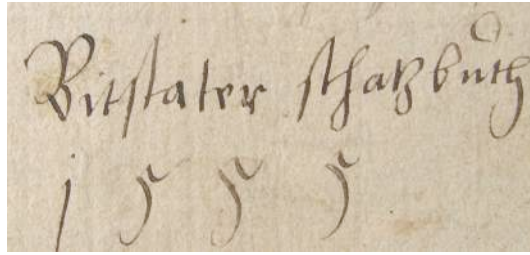 Bitstater schatzbuch
1555